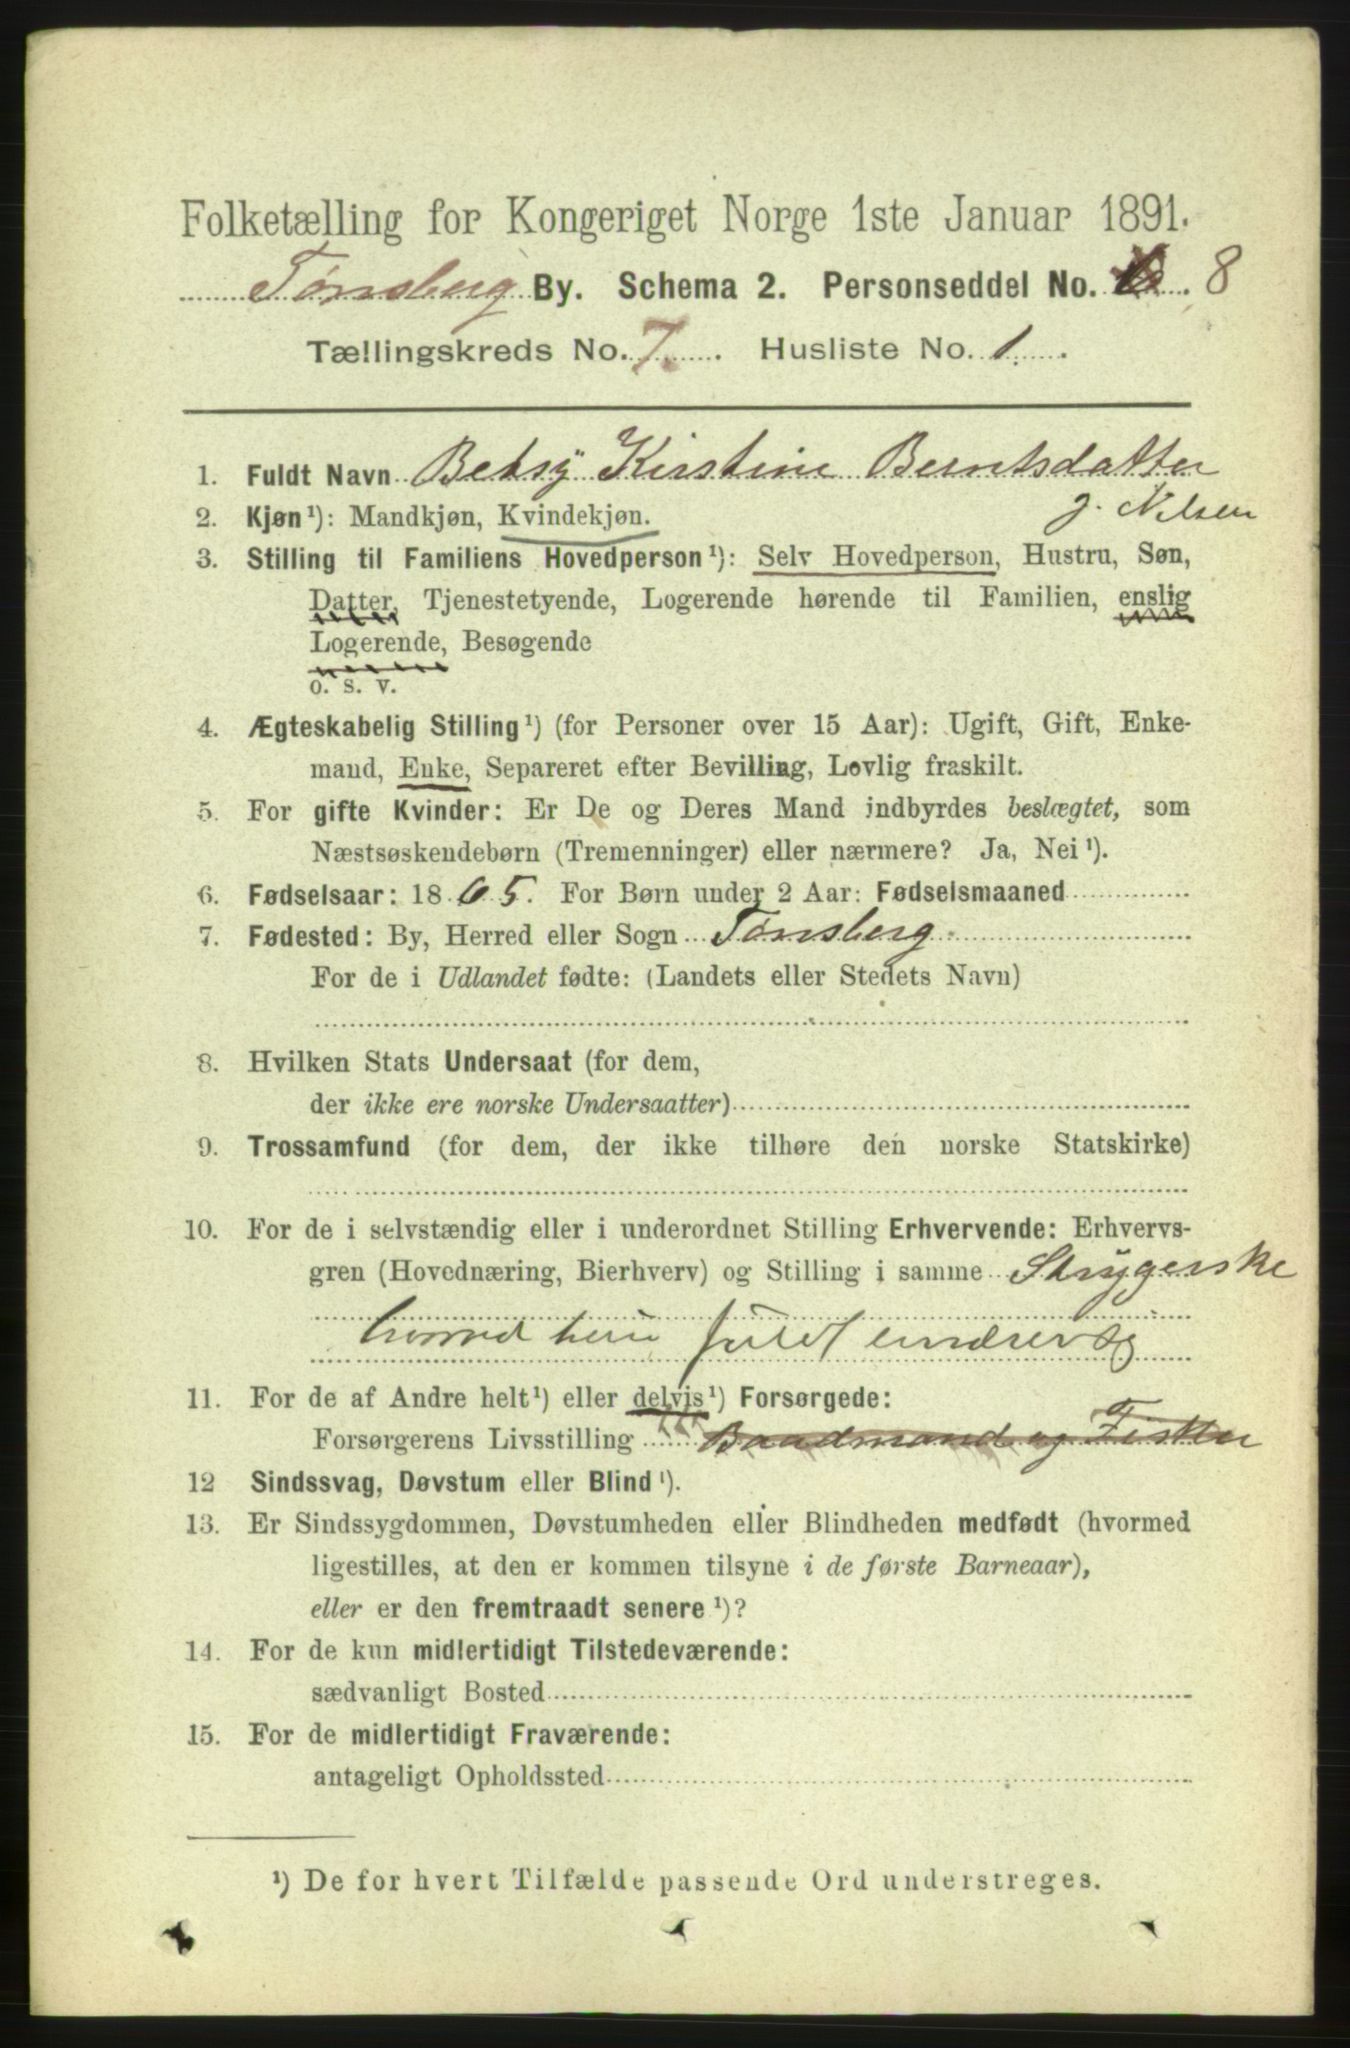 Folketælling for Kongeriget Norge 1ste Januar 1891.
Tønsberg By. Schema 2. Personseddel No. 8
Tællingskreds No. 7. Husliste No. 1.
1. Fuldt Navn Betsÿ Kirstine Berntsdatter
g. Nilsen
2. Kjøn ¹): Mandkjøn, Kvindekjøn.
3. Stilling til Familiens Hovedperson ¹): Selv Hovedperson, Hustru, Søn,
Datter, Tjenestetyende, Logerende hørende til Familien, enslig
Logerende, Besøgende
o. s. v.
4. Ægteskabelig Stilling ¹) (for Personer over 15 Aar): Ugift, Gift, Enke-
mand, Enke, Separeret efter Bevilling, Lovlig fraskilt.
5. For gifte Kvinder: Er De og Deres Mand indbyrdes beslægtet, som
Næstsøskendebørn (Tremenninger) eller nærmere? Ja, Nei ¹).
6. Fødselsaar: 1865. For Børn under 2 Aar: Fødselsmaaned
7. Fødested: By, Herred eller Sogn Tønsberg
For de i Udlandet fødte: (Landets eller Stedets Navn)
8. Hvilken Stats Undersaat (for dem,
der ikke ere norske Undersaatter)
9. Trossamfund (for dem, der ikke tilhøre den norske Statskirke)
10. For de i selvstændig eller i underordnet Stilling Erhvervende: Erhvervs-
gren (Hovednæring, Bierhverv) og Stilling i samme Strygerske
hvormed hun fuldt ernærer sig
11. For de af Andre helt ¹) eller delvis ¹) Forsørgede:
Forsørgerens Livsstilling Baadmand og Fisker
12 Sindssvag, Døvstum eller Blind ¹).
13. Er Sindssygdommen, Døvstumheden eller Blindheden medfødt (hvormed
ligestilles, at den er kommen tilsyne i de første Barneaar),
eller er den fremtraadt senere ¹)?
14. For de kun midlertidigt Tilstedeværende:
sædvanligt Bosted
15. For de midlertidigt Fraværende:
antageligt Opholdssted
¹) De for hvert Tilfælde passende Ord understreges.